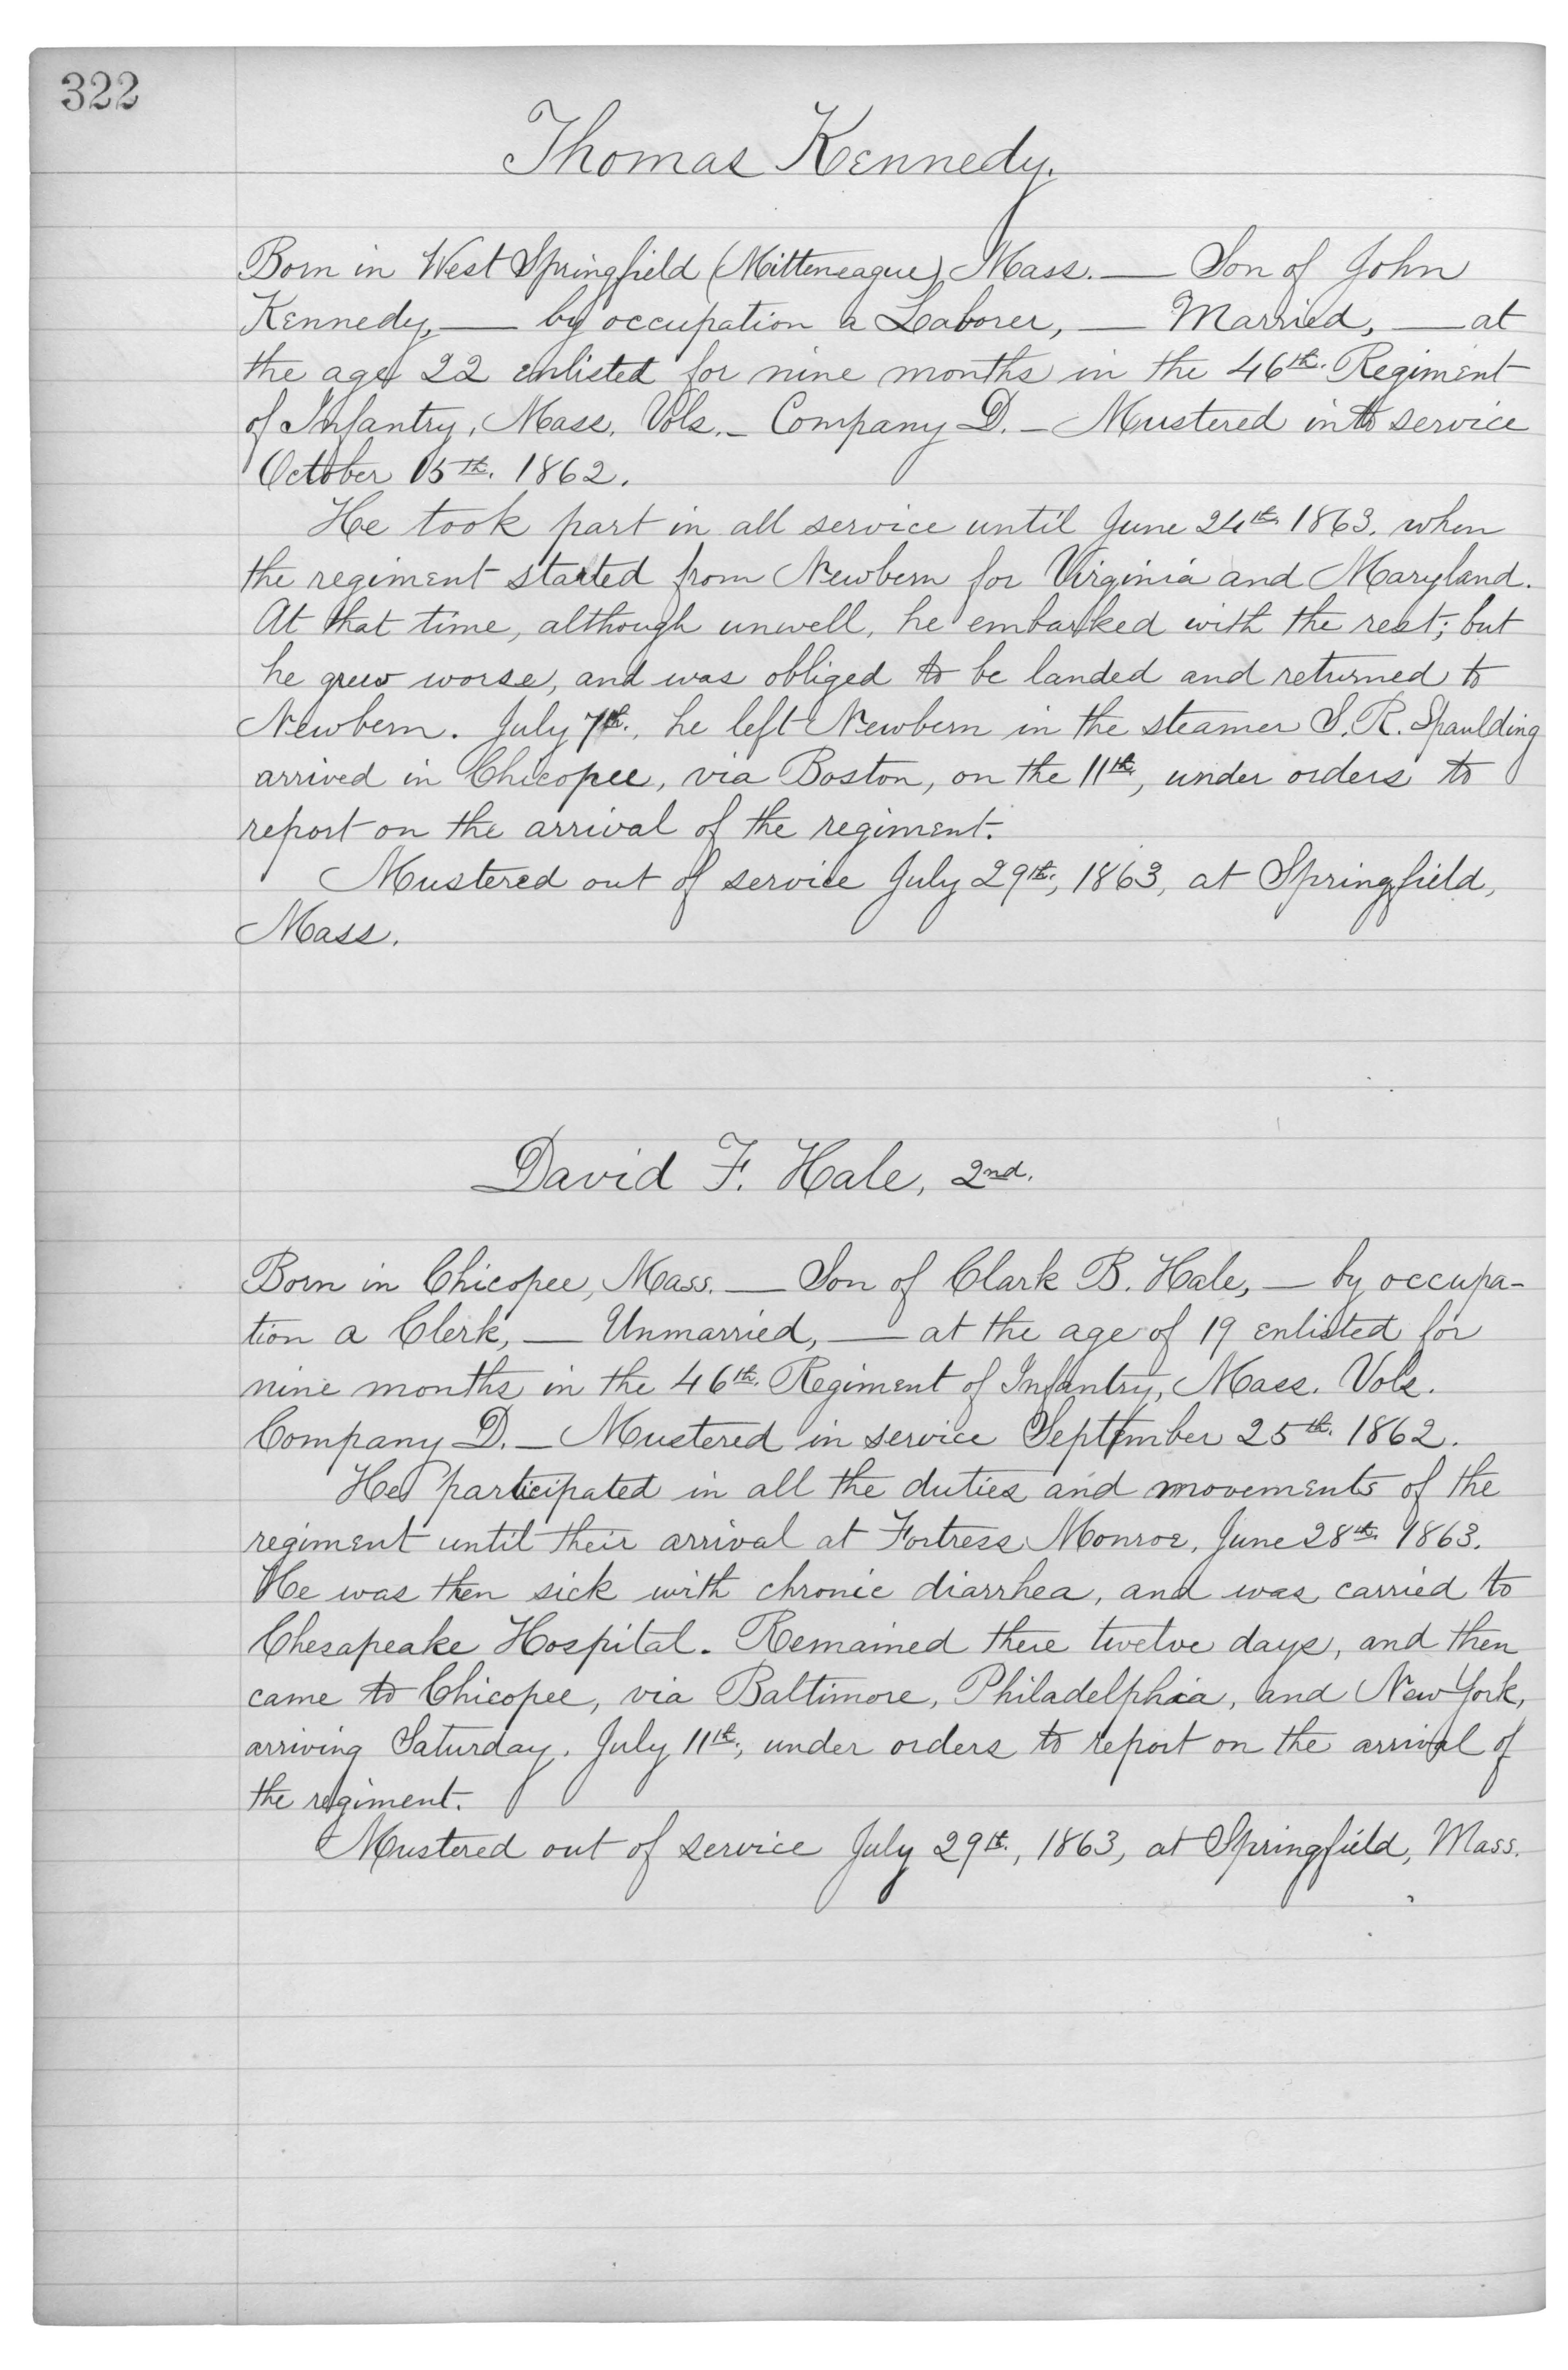 322
Thomas Kennedy.
Born in West Springfield (Mitteneague) Mass. — Son of John
Kennedy, — by occupation a Laborer, — Married, — at
the age 22 enlisted for nine months in the 46th. Regiment
of Infantry, Mass. Vols. – Company D. – Mustered into service
October 15th. 1862.
He took part in all service until June 24th. 1863. when
the regiment started from Newbern for Virginia and Maryland.
At that time, although unwell, he embarked with the rest; but
he grew worse, and was obliged to be landed and returned to
Newbern. July 7th., he left Newbern in the steamer S. R. Spaulding
arrived in Chicopee, via Boston, on the 11th, under orders to
report on the arrival of the regiment.
Mustered out of service July 29th., 1863, at Springfield,
Mass.
David F. Hale, 2nd.
Born in Chicopee, Mass. — Son of Clark B. Hale, — by occupa-
tion a Clerk, — Unmarried, — at the age of 19 enlisted for
nine months in the 46th. Regiment of Infantry, Mass. Vols.
Company D. – Mustered in service September 25th. 1862.
He participated in all the duties and movements of the
regiment until their arrival at Fortress Monroe, June 28th. 1863.
He was then sick with chronic diarrhea, and was carried to
Chesapeake Hospital. Remained there twelve days, and then
came to Chicopee, via Baltimore, Philadelphia, and New York,
arriving Saturday, July 11th., under orders to report on the arrival of
the regiment.
Mustered out of service July 29th., 1863, at Springfield, Mass.